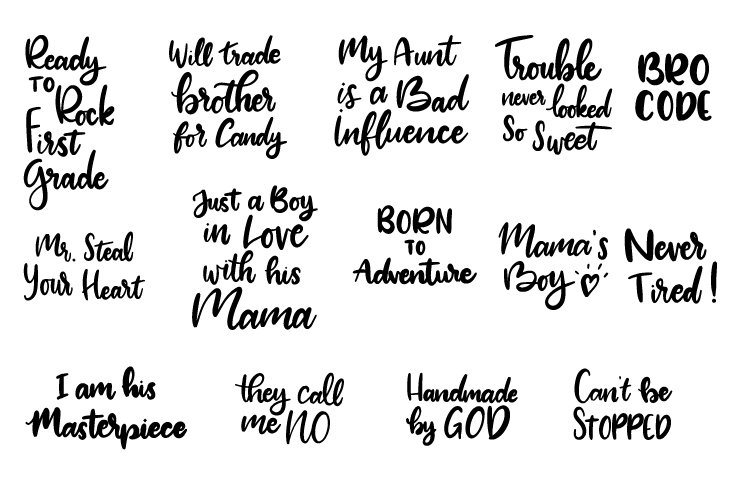 Ready
TO
Rock
First
Grade
Will trade
brother
for Candy
My Aunt
is a Bad
Influence
Trouble
never looked
So Sweet
BRO
CODE
Mr. Steal
Your Heart
Just a Boy
in Love
with his
Mama
BORN
TO
Adventure
Mama's
Boy
Never
Tired!
I am his
Masterpiece
they call
me NO
Handmade
by GOD
Can't be
STOPPED